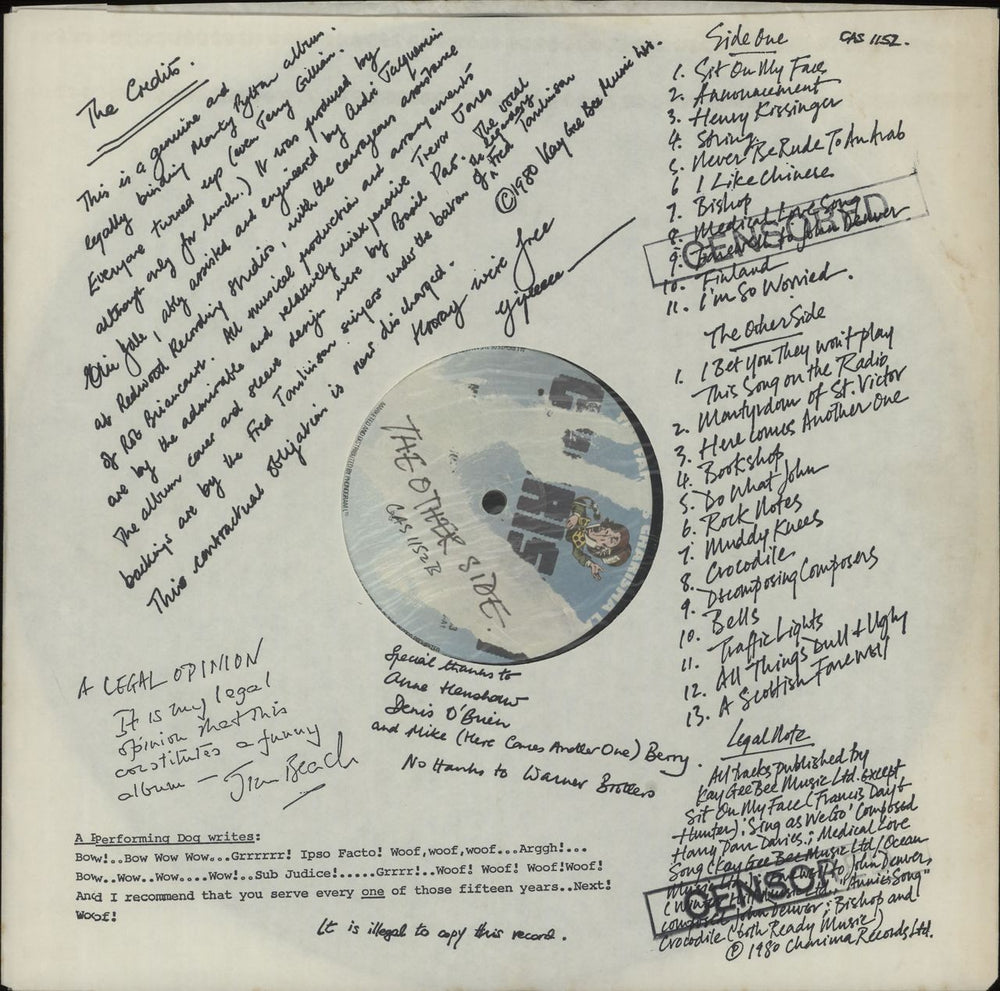 The Credits.
This is a genuine and
legally binding Monty Python album.
Everyone turned up (even Terry Gilliam.
although only for lunch.) It was produced by
Eric Idle, ably assisted and engineered by André Jacquemin
at Redwood Recording Studios, with the courageous assistance
of Rob Briancourt. All musical production and arrangements
are by the admirable and relatively inexpensive Trevor Jones
The album cover and sleeve design were by Basil Pao. The vocal
backings are by the Fred Tomlinson singers under the baton of the legendary Fred Tomlinson
This contractual obligation is now discharged.
©1980 Kay Gee Bee Music Ltd.
Hooray we're free
Side One
GAS 1152.
1. Sit On My Face
2. Announcement
3. Henry Kissinger
4. String
5. Never Be Rude To An Arab
6 I Like Chinese
7. Bishop
8. Medical Love Song
9. Farewell To John Denver
10. Finland
11. I'm So Worried.
CENSORED
The Other Side
1. I Bet You They won't play
This Song on the Radio
2. Martyrdom of St. Victor
3. Here Comes Another One
4. Bookshop
5. Do What John
6. Rock Notes
7. Muddy Knees
8. Crocodile
9. Decomposing Composers
10. Bells
11. Traffic Lights
12. All Things Dull & Ugly
13. A Scottish Farewell
THE OTHER SIDE.
GAS 1152 B
RIS
CHARISMA
A LEGAL OPINION
It is my legal
opinion that this
constitutes a funny
album –
Jim Beach
Special thanks to
Anne Henshaw
Denis O'Brien
and Mike (Here Comes Another One) Berry.
No thanks to Warner Brothers
Legal Note
All tracks published by
Kay Gee Bee Music Ltd. except
Sit On My Face (Francis Day &
Hunter). 'Sing as We Go' Composed
Harry Parr Davies.; Medical Love
Song (Kay Gee Bee Music Ltd/Ocean
Music to John Denver
Music Ltd. "Annie's Song"
composed John Denver; Bishop and
Crocodile (both Ready Music)
© 1980 Charisma Records Ltd.
CENSOR
A Performing Dog writes:
Bow!..Bow Wow Wow...Grrrrrr! Ipso Facto! Woof,woof,woof...Arggh!...
Bow..Wow..Wow....Wow!..Sub Judice!.....Grrrr!..Woof! Woof! Woof!Woof!
And I recommend that you serve every one of those fifteen years..Next!
Woof!
It is illegal to copy this record.